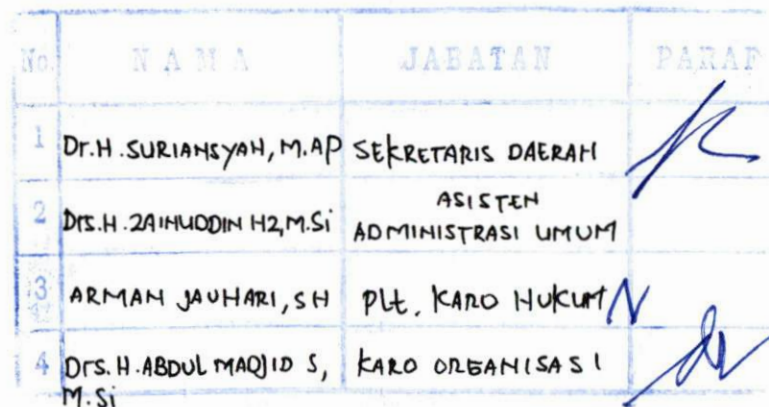 No. NAMA JABATAN PARAF
1 Dr.H.SURIANSYAH, M.AP SEKRETARIS DAERAH
ASISTEN
2 Drs.H.ZAINUDDIN HZ,M.Si ADMINISTRASI UMUM
3 ARMAN JAUHARI, SH Plt. KARO HUKUM
4 Drs.H.ABDUL MADJID S, KARO ORGANISASI
M.Si